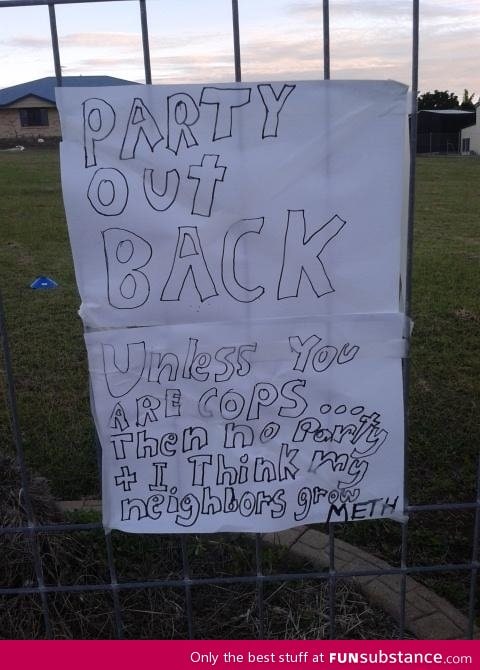 PARTY
OUt
BACK
UnLess You
ARE COPS...
Then no Party
+ I Think my
neighbors grow
METH
Only the best stuff at FUNsubstance.com